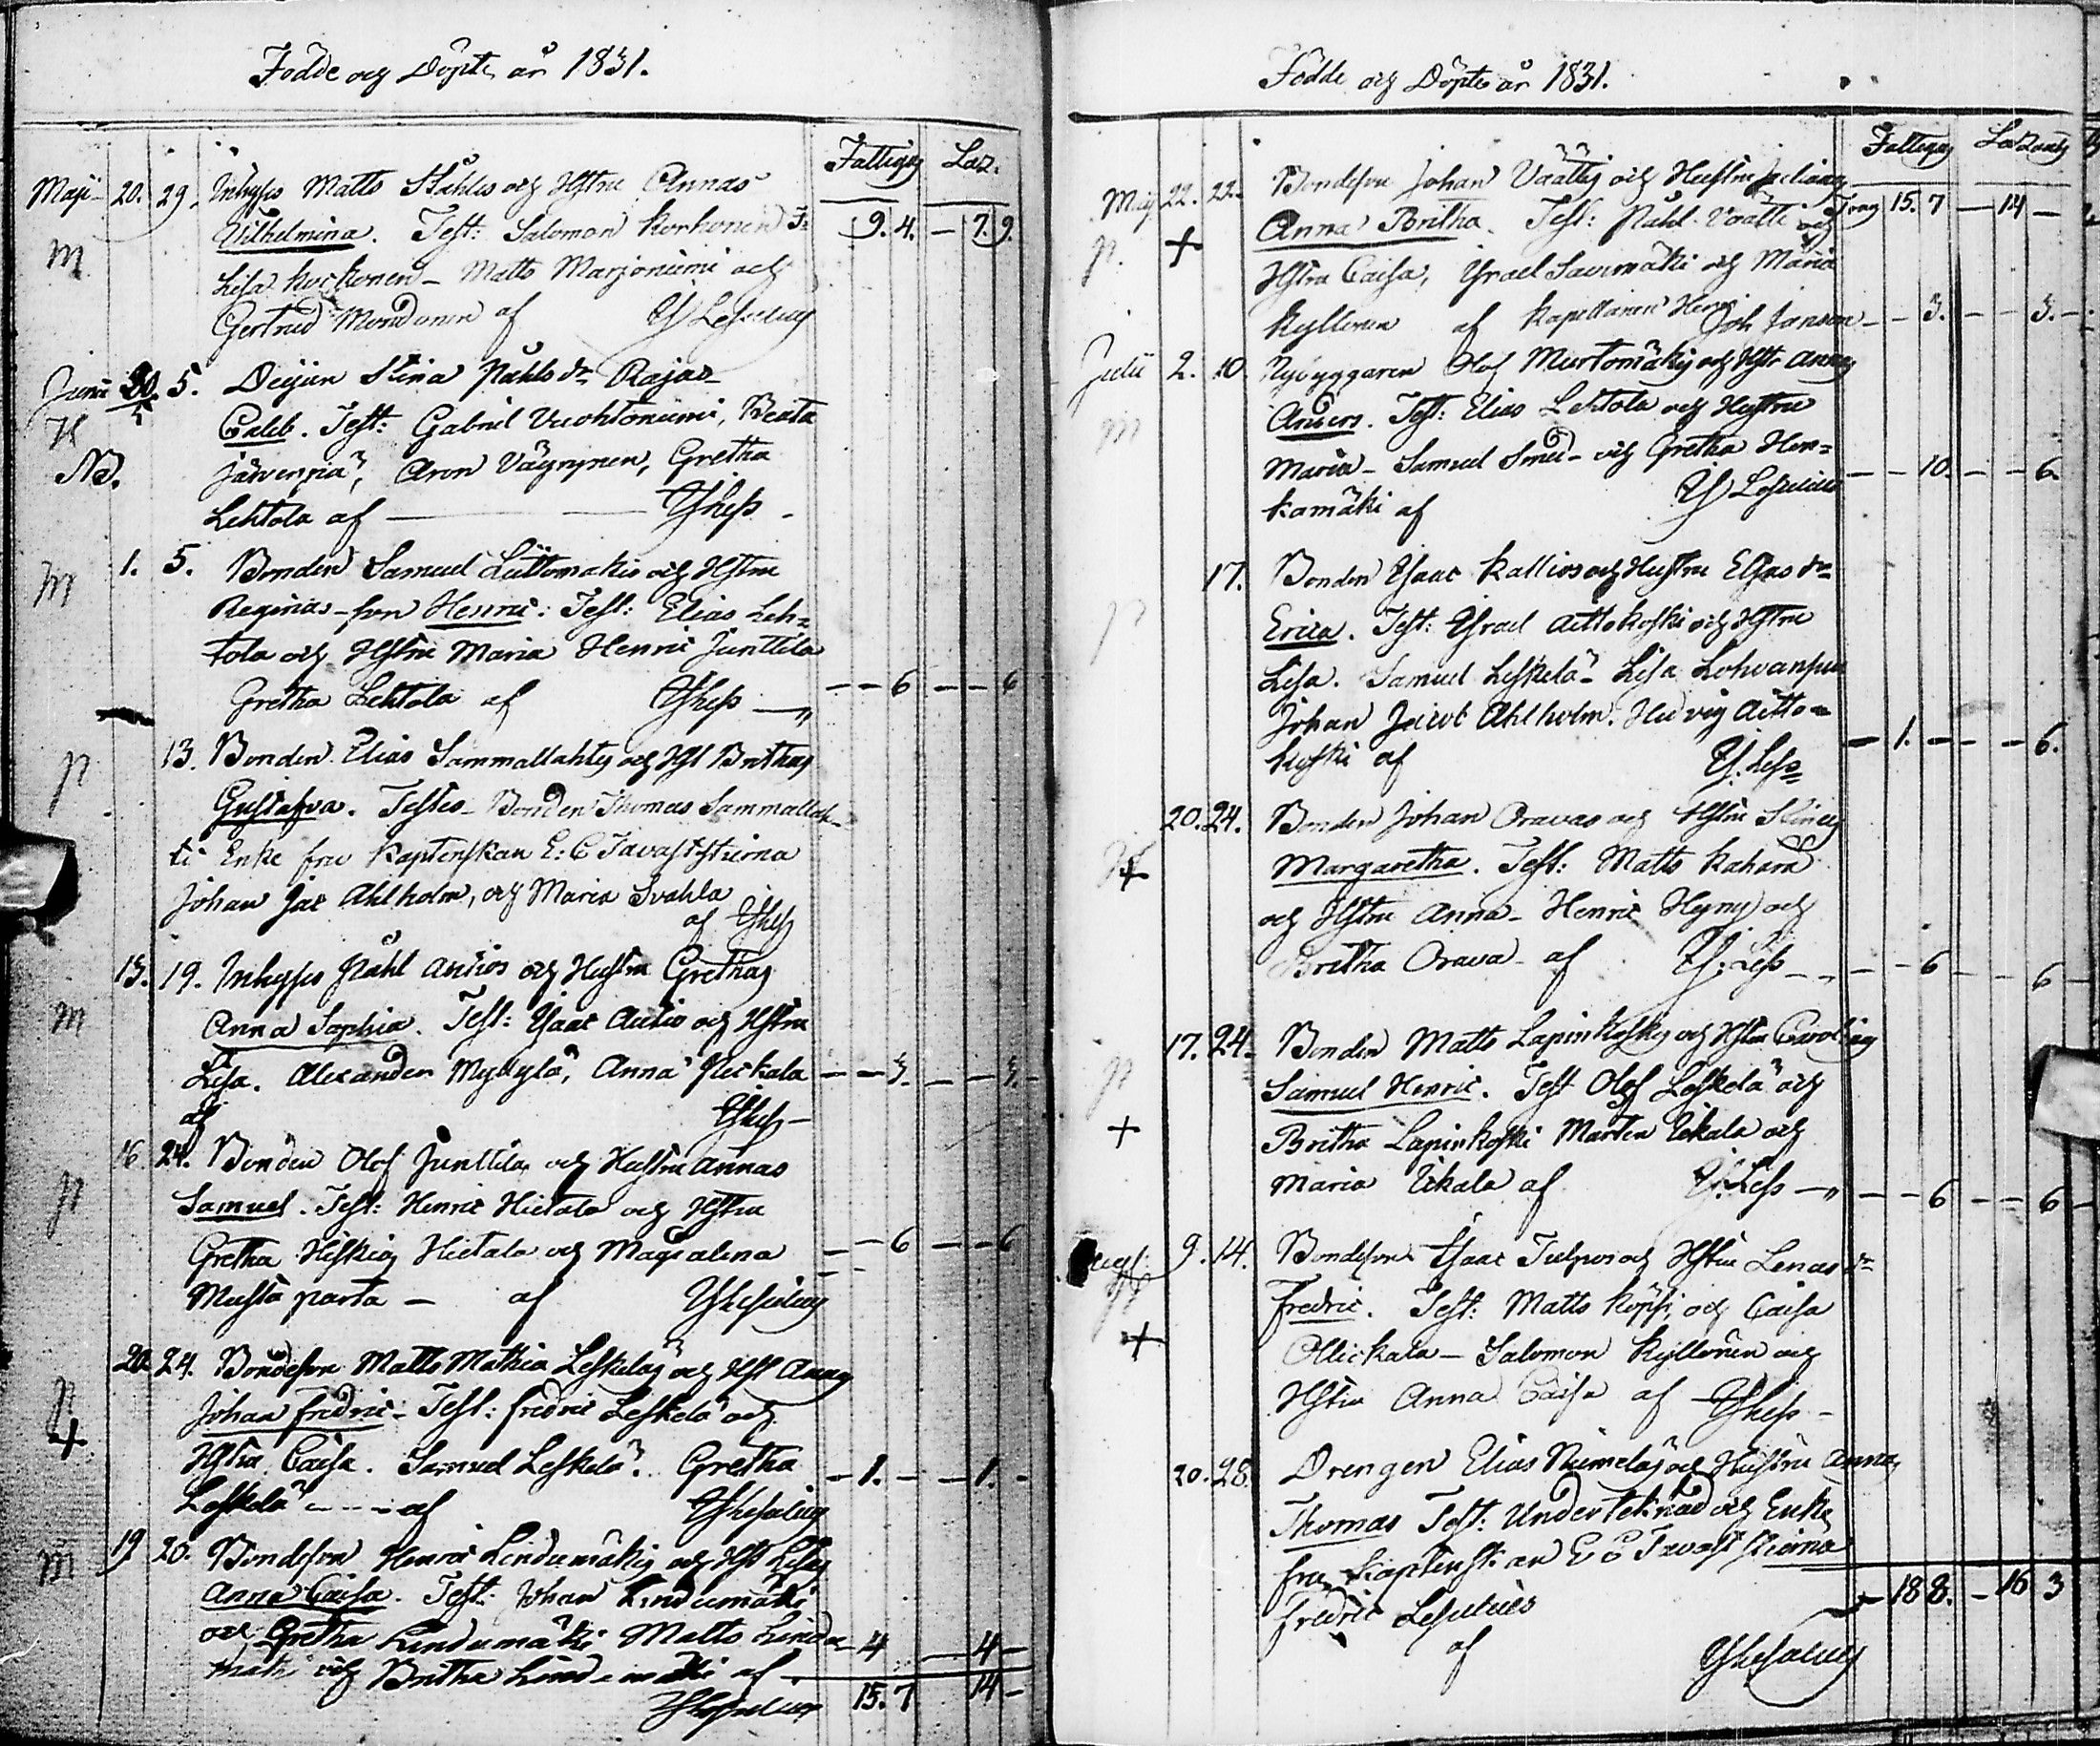 Födde och Döpte år 1831.
Fattigas Laz.
Maji 20. 29. Inhyses Matts Ståhles och Hstru Annas
M Wilhelmina. Test: Salomon Korhonen 9. 4. 7. 9.
Lisa Korhonen - Matts Marjoniemi och
Gertrud Mondonen af
Junii 30. 5. Deijan Stina Påhlsdr Rajas
Caleb. Test: Gabriel Vuohtoniemi, Beata
NB. Järvenpää, Aron Väyrynen, Gretha
Lehtola af
M 1. 5. Bonden Samuel Lüttomäkis och Hstru
Reginas son Henric: Test: Elias Leh=
tola och Hstru Maria Henric Junttila
Gretha Lehtola af 6 6
13. Bonden Elias Sammallahtis och Hst Brithas
Gustafva. Testes - Bonden Thomas Sammallah-
ti Enke fru Kaptenskan E: C Tavaststierna
Johan Jac Ahlholm, och Maria Svahla
af
13. 19. Inhyses Påhl Autios och Hustru Grethas
M Anna Sophia. Test: Isaac Autio och Hstru
Lisa. Alexander Myllylä, Anna Pickala 3. 3.
af
16. 24. Bonden Olof Junttilas och Hustru Annas
Samuel. Test: Henric Hietala och Hstru
Gretha Hiskias Hietala och Magdalena 6 6
Mustaparta - af
20 24. Bondeson Matts Mathia Leskeläs och Hst Annas
Johan Fredric - Test: Fredric Leskelä och
Hstru Caisa. Samuel Leskelä. Gretha 1. 1.
Leskelä - af
M 19 20. Bondeson Henric Lindumäkis och Hst Lisas
Anna Caisa. Test: Johan Lindumäki
och Gretha Lindumäki Matts Lindu- 4 4
mäki och Britha Lindumäki af
15. 7 14
Födde och Döpte år 1831.
Fattigas Lazarets
Maji 22. 22. Bondeson Johan Väättis och Hustru Julianas
+ Anna Britha. Test: Påhl Väätti och 15. 7 14
Hstru Caisa, Israel Savimäki och Maria
Kyllönen af Kapellanen Herr Joh Janson 3. 3.
Julii 2. 10. Nybyggaren Olof Murtomäkis och Hstr Annas
M Anders. Test: Elias Lehtola och Hustru
Maria - Samuel Smed - och Gretha Hon= 10. 6.
kamäki af
17. Bonden Isaac Kallios och Hustru Elsas dr
Erica. Test: Israel Aittokoski och Hstru
Lisa. Samuel Leskelä - Lisa Lohvansuu
Johan Jacob Ahlholm. Hedvig Aitto= 1. 6.
koski af
20. 24. Bonden Johan Oravas och Hstru Stinas
+ Margaretha. Test: Matts Kahara
och Hstru Anna - Henric Hyny och
Britha Orava - af 6 6
17. 24. Bonden Matts Lapinkoskis och Hstru Carolinas
Samuel Henric. Test Olof Leskelä och
+ Britha Lapinkoski Mårten Ukala och
Maria Ukala af 6 6
9. 14. Bondeson Isaac Tulpos och Hstru Lenas
Fredric. Test: Matts Köpsi, och Caisa
+ Ollickala - Salomon Kyllönen och
Hstru Anna Caisa af
20. 28. Drengen Elias Niemeläs och Hustru Annas
Thomas Test: Undertecknad och Enke
fru Kaptenskan E C Tavaststierna
Fredric Lesulius 18 8. 16 3
af